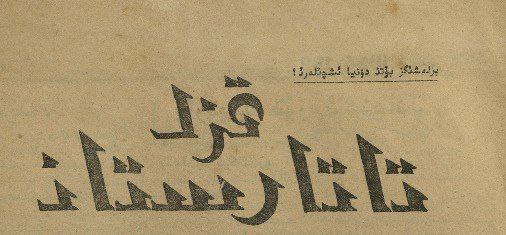 برلەشڭز بۇتن دۇنيا ئشچلەرى!
قزل
تاتارستان